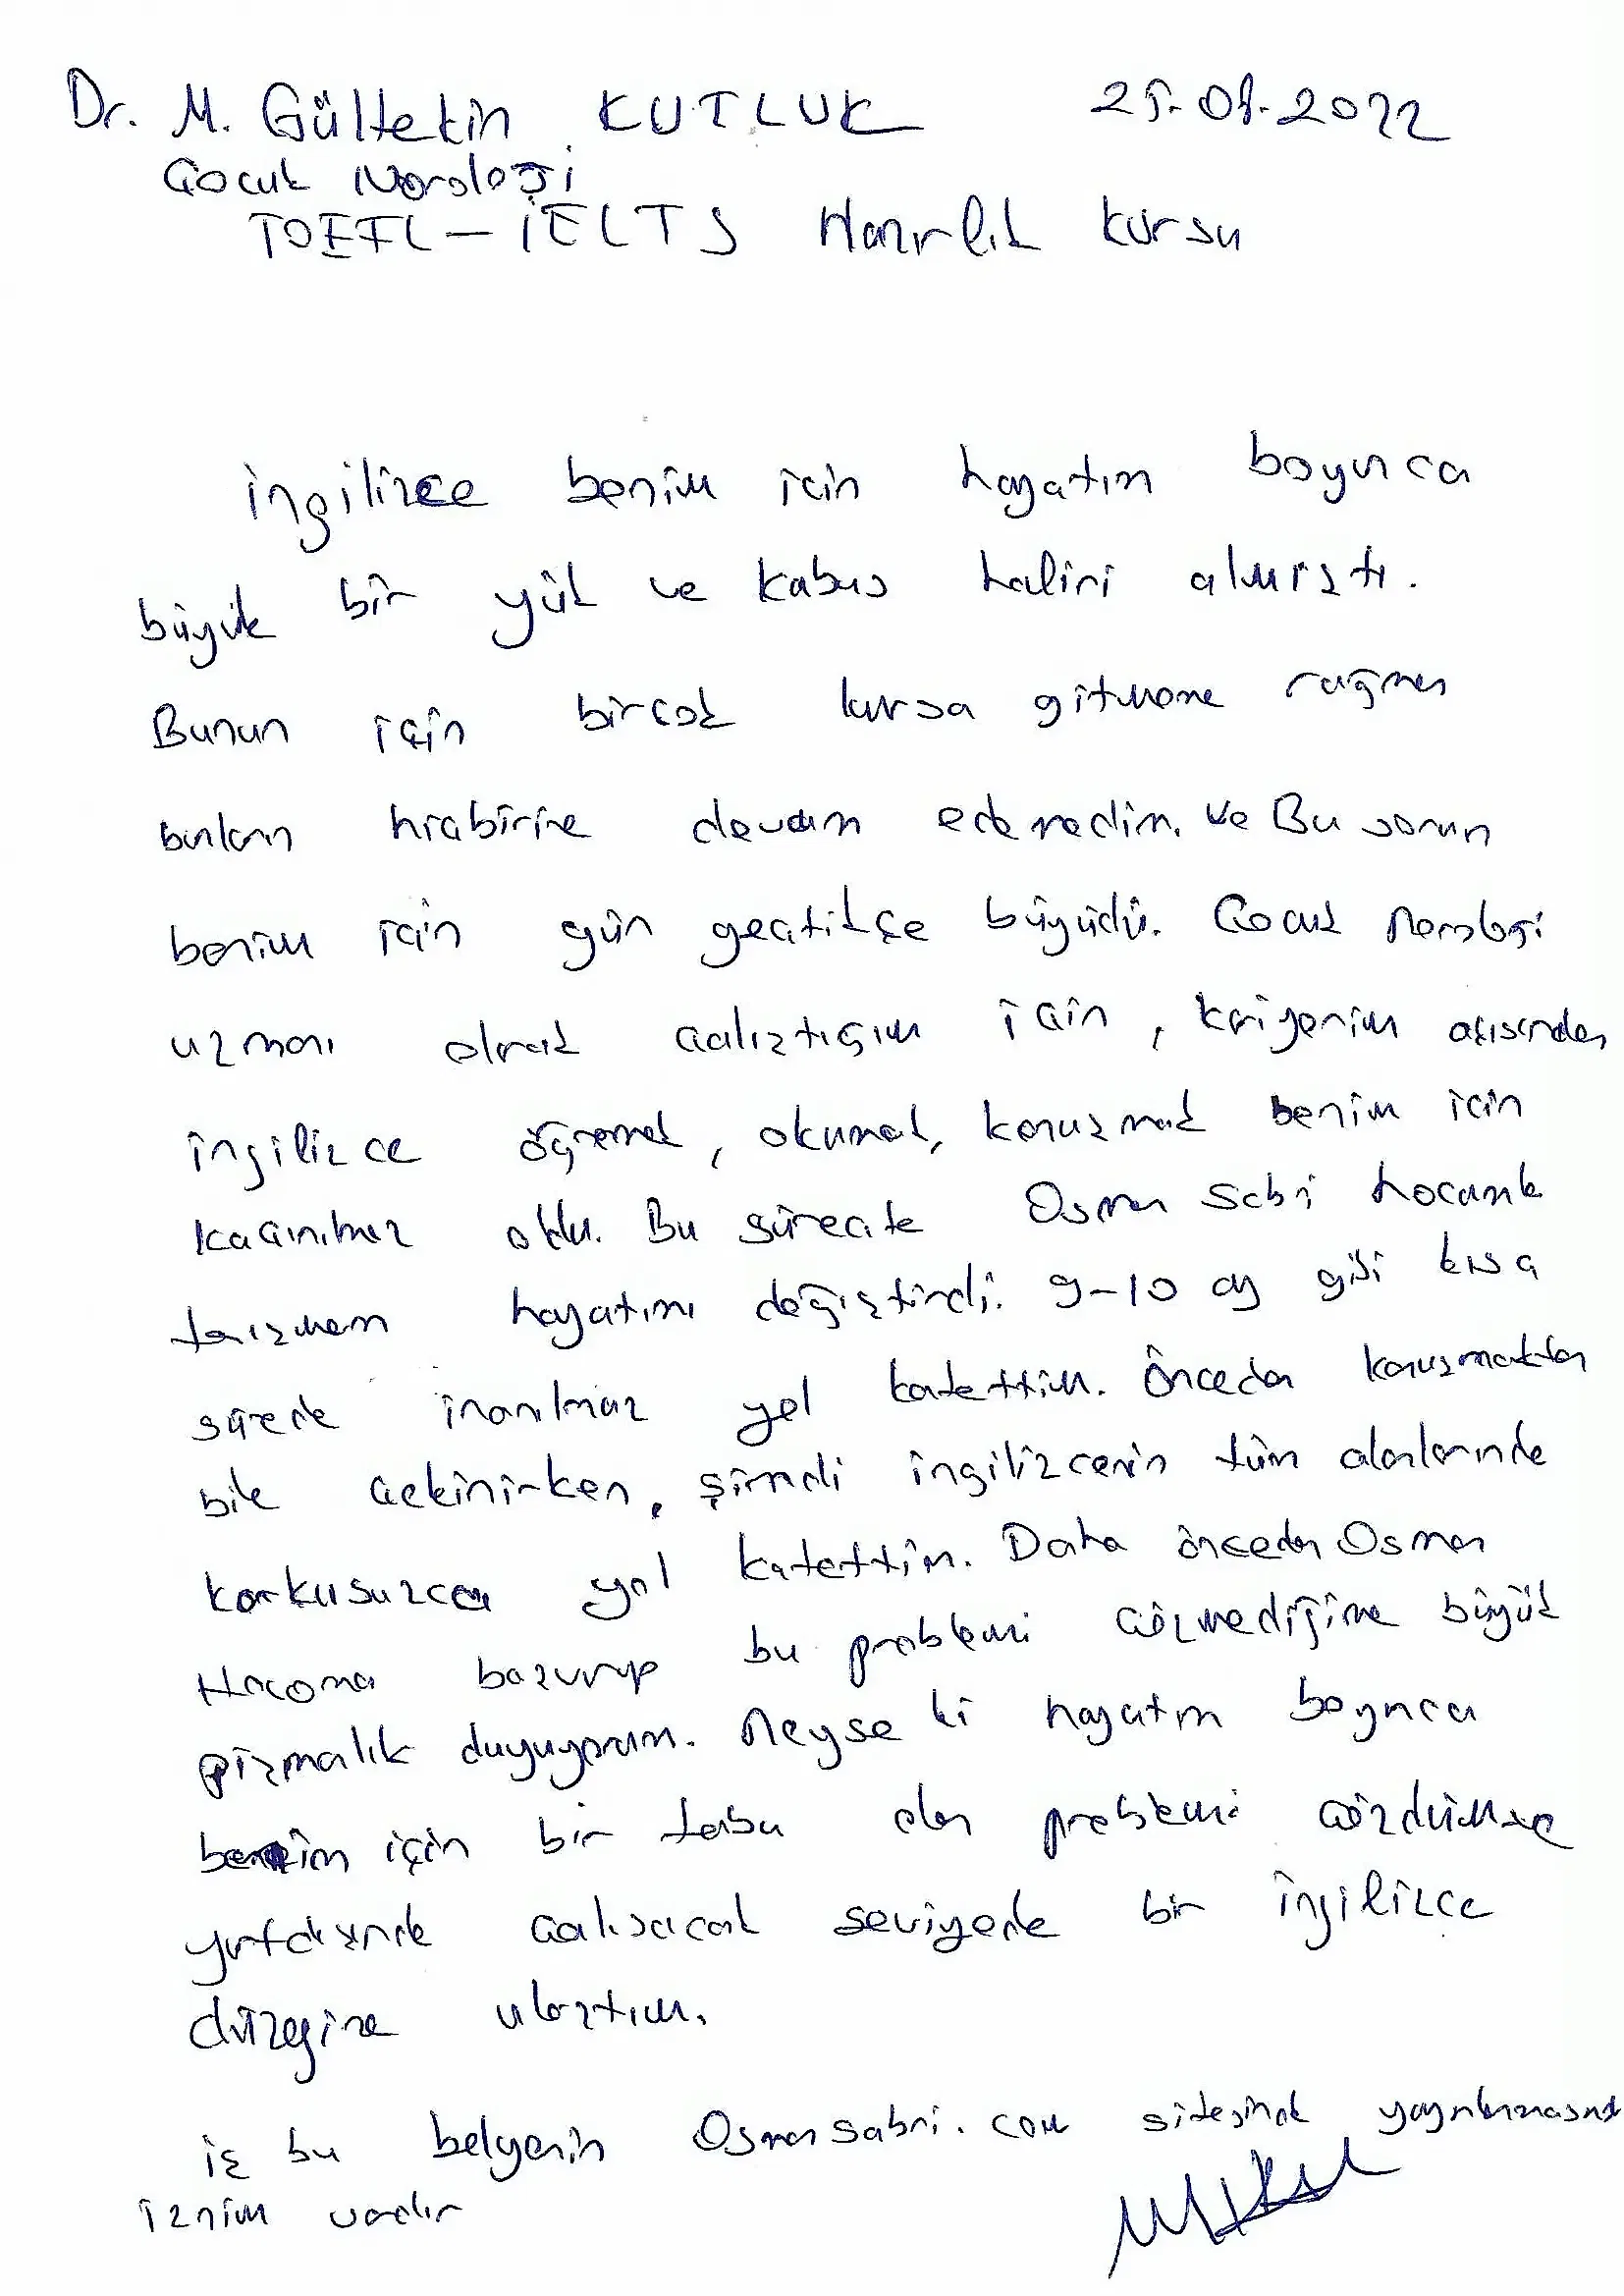 Dr. M. Gültekin KUTLUK 25.01.2022
Çocuk Noroloji
TOEFL - İELTS Hazırlık Kursu
İngilizce benim için hayatım boyunca
büyük bir yük ve kabus halini almıştı.
Bunun için birçok kursa gitmeme rağmen
bunların hiçbirine devam edemedim. ve Bu sorun
benim için gün geçtikçe büyüdü. Çocuk Noroloji
uzmanı olarak çalıştığım için, kariyerim açısından
ingilizce öğrenmek, okumak, konuşmak benim için
kaçınılmaz oldu. Bu süreçte Osman Sabri hocamla
tanışmam hayatımı değiştirdi. 9-10 ay gibi kısa
sürede inanılmaz yol katettim. Önceden konuşmaktan
bile çekinirken, şimdi ingilizcenin tüm alanlarında
korkusuzca yol katettim. Daha önceden Osman
Hocama başvurup bu problemi çözmediğime büyük
pişmanlık duyuyorum. Neyse ki hayatım boyunca
benim için bir tabu olan problemi çözdüm ve
yurtdışında çalışacak seviyede bir ingilizce
düzeyine ulaştım.
iş bu belgenin Osmansabri.com sitesinde yayınlanmasına
iznim vardır